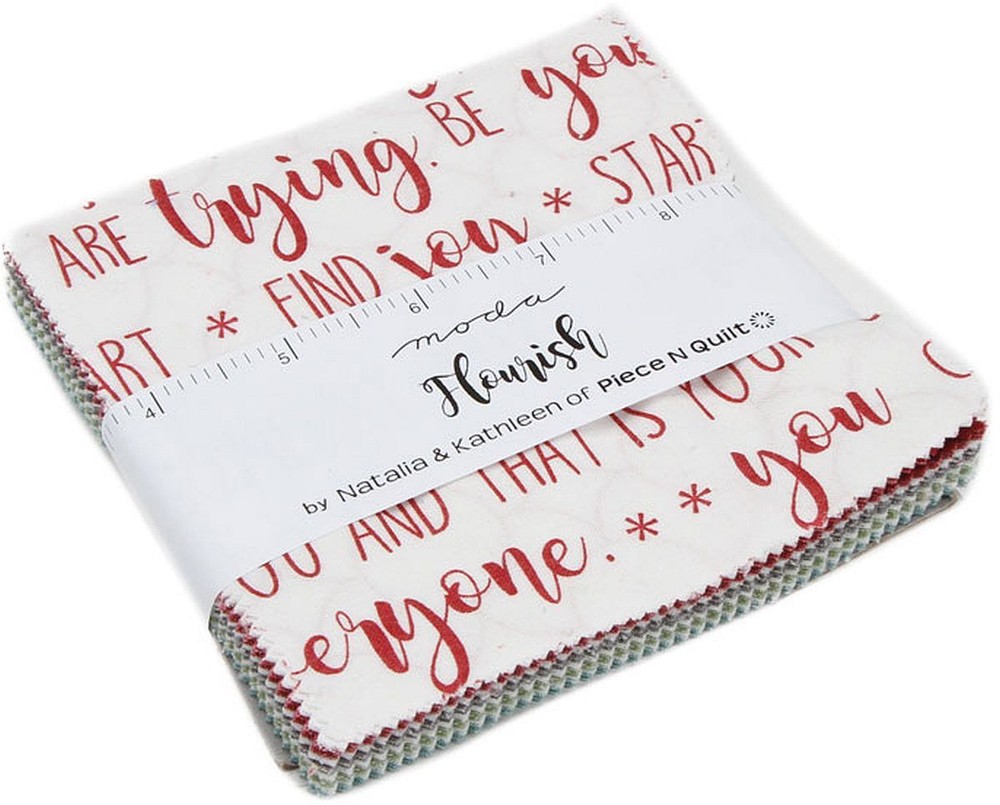 BE you
ARE trying.
* START
FIND
ART *
4 5 6 7 8
moda
Flourish
by Natalia & Kathleen of Piece N Quilt
AND THAT IS YOUR
* * you
eryone.